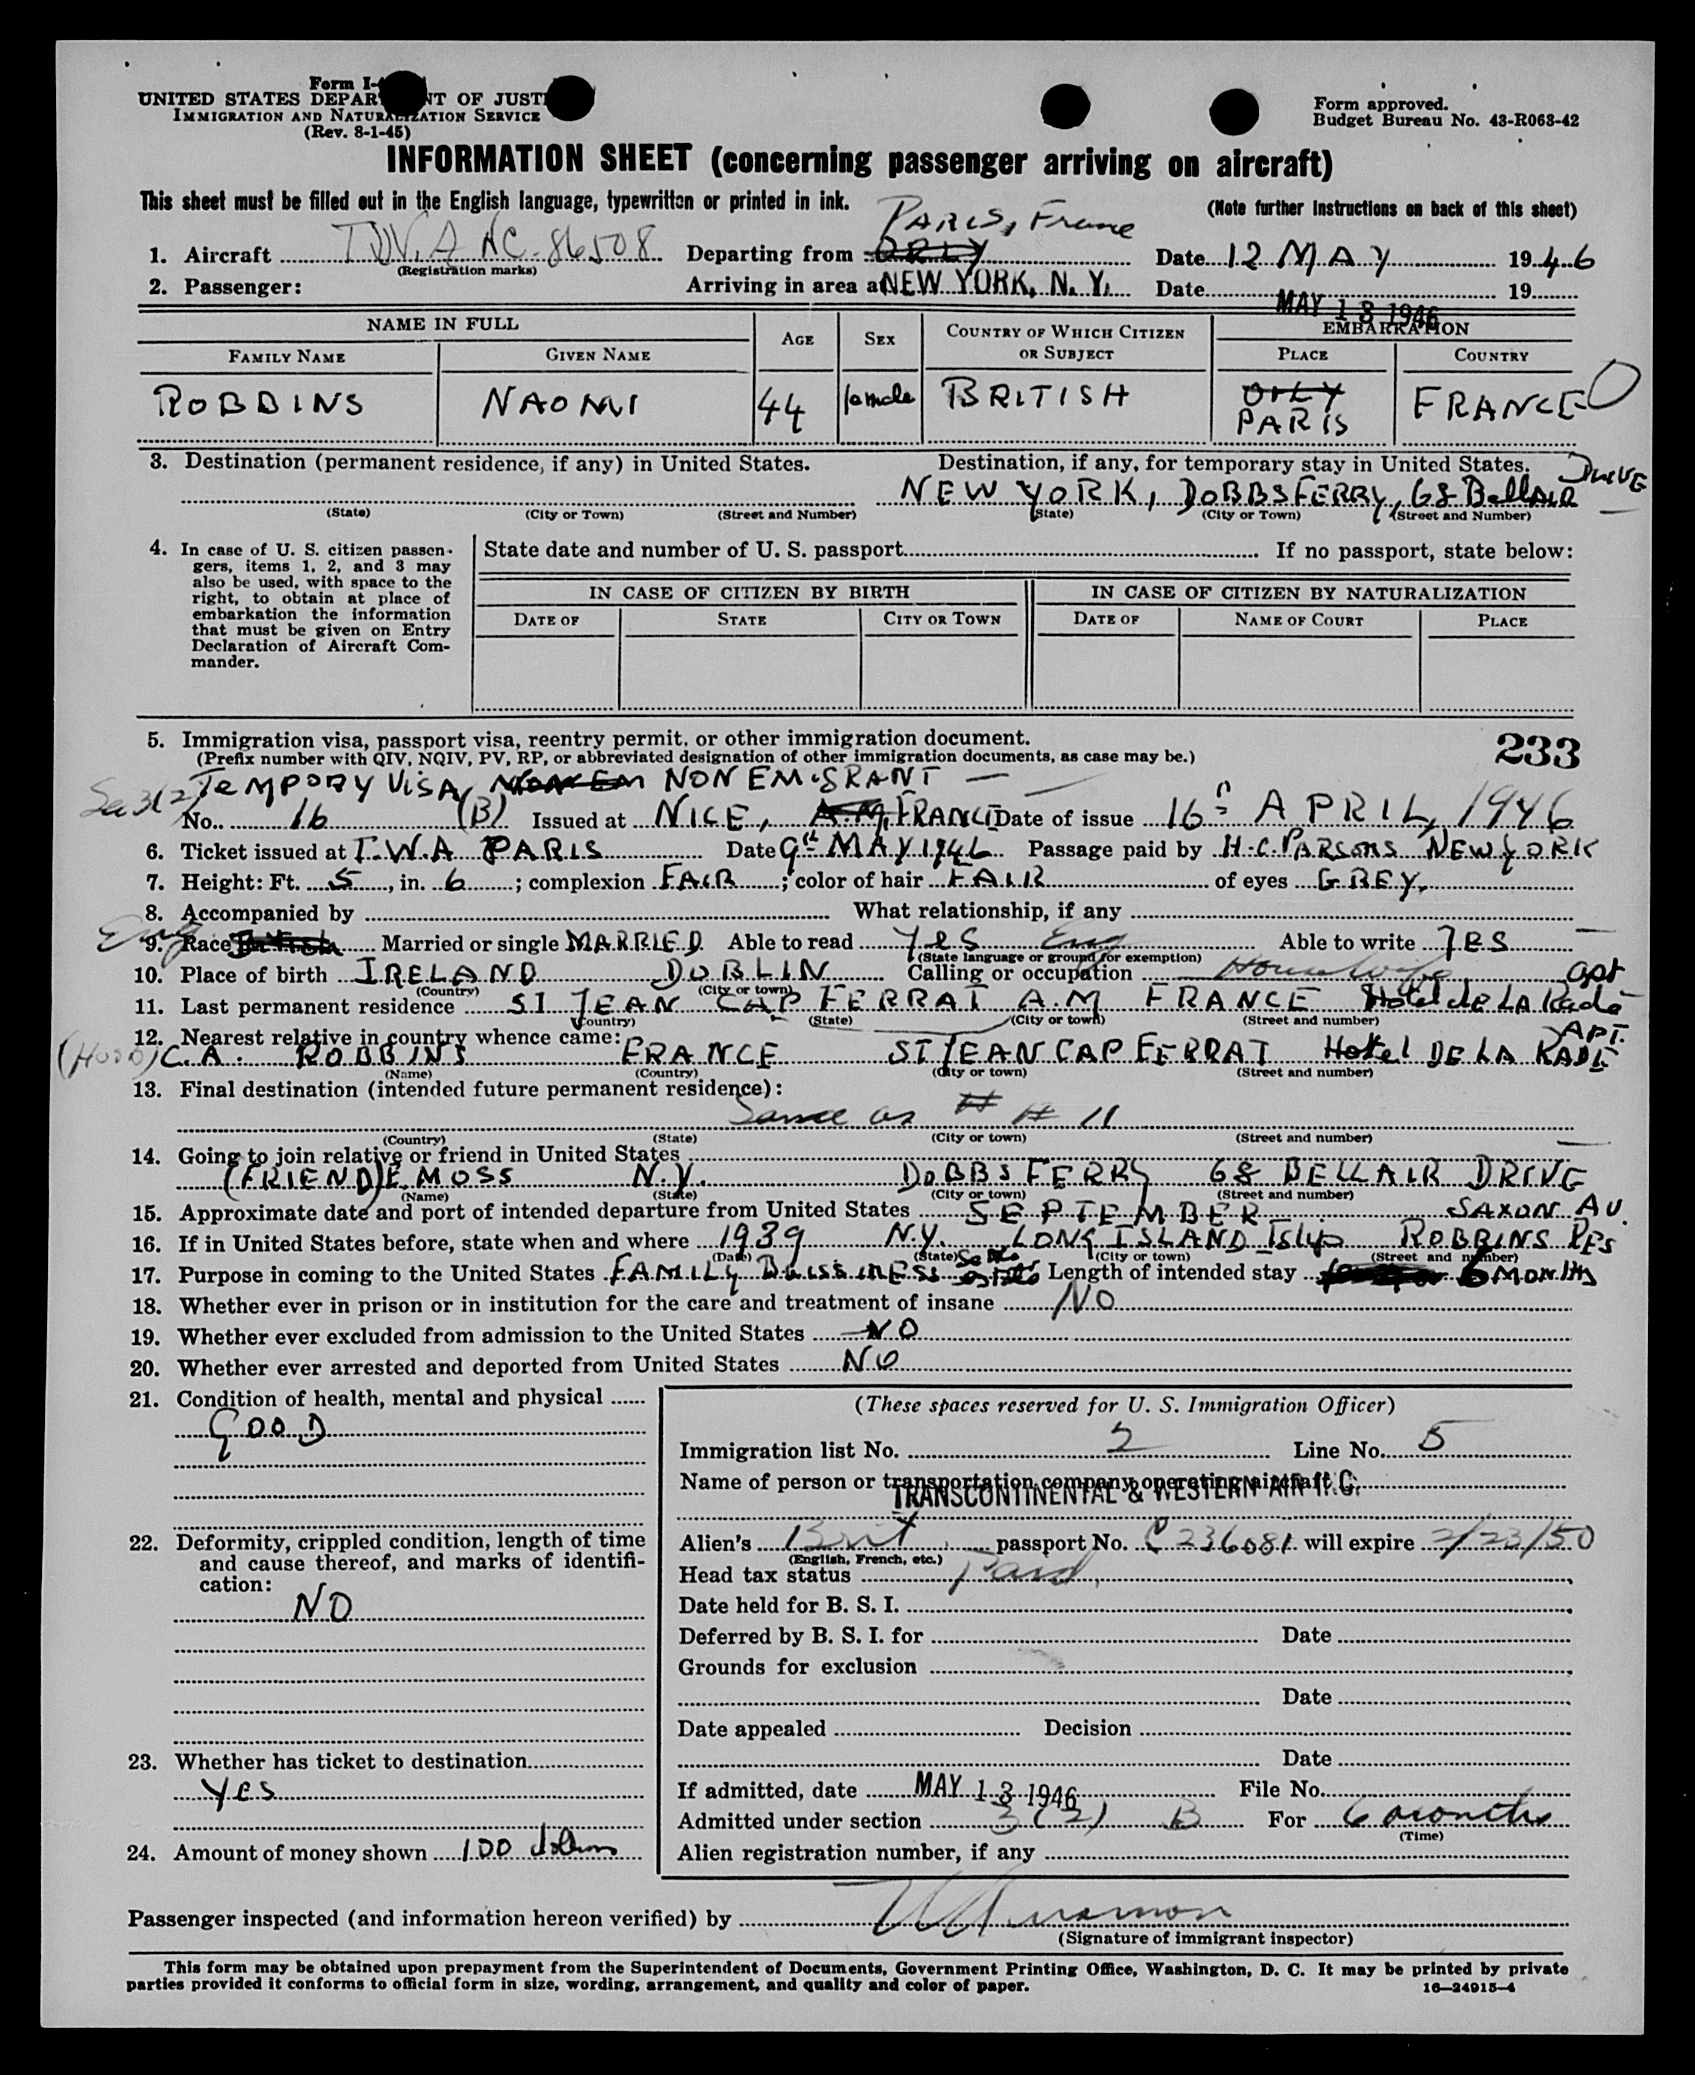 Form I-
UNITED STATES DEPARTMENT OF JUSTICE
IMMIGRATION AND NATURALIZATION SERVICE
(Rev. 8-1-45)
Form approved.
Budget Bureau No. 43-R063-42
INFORMATION SHEET (concerning passenger arriving on aircraft)
This sheet must be filled out in the English language, typewritten or printed in ink.
(Note further instructions on back of this sheet)
PARIS, France
1. Aircraft T.W.A NC-86508 Departing from ORLY Date 12 MAY 1946
(Registration marks)
2. Passenger: Arriving in area at NEW YORK, N. Y. Date MAY 13 1946 19
NAME IN FULL AGE SEX COUNTRY OF WHICH CITIZEN OR SUBJECT EMBARKATION
FAMILY NAME GIVEN NAME PLACE COUNTRY
ROBBINS NAOMI 44 female BRITISH ORLY PARIS FRANCE
3. Destination (permanent residence, if any) in United States. Destination, if any, for temporary stay in United States.
NEW YORK, DOBBS FERRY, 68 BellAIR DRIVE
(State) (City or Town) (Street and Number) (State) (City or Town) (Street and Number)
4. In case of U. S. citizen passen-
gers, items 1, 2, and 3 may
also be used, with space to the
right, to obtain at place of
embarkation the information
that must be given on Entry
Declaration of Aircraft Com-
mander.
State date and number of U. S. passport If no passport, state below:
IN CASE OF CITIZEN BY BIRTH IN CASE OF CITIZEN BY NATURALIZATION
DATE OF STATE CITY OR TOWN DATE OF NAME OF COURT PLACE
5. Immigration visa, passport visa, reentry permit, or other immigration document.
(Prefix number with QIV, NQIV, PV, RP, or abbreviated designation of other immigration documents, as case may be.)
233
Sec 3(2) TEMPORY VISA, NON EMIGRANT
No. 16 (B) Issued at NICE, A.M, FRANCE Date of issue 16 APRIL, 1946
6. Ticket issued at T.W.A PARIS Date 9th MAY 1946 Passage paid by H.C. PARSONS NEW YORK
7. Height: Ft. 5, in. 6; complexion FAIR; color of hair FAIR of eyes GREY.
8. Accompanied by What relationship, if any
Eng 9. Race British Married or single MARRIED Able to read Yes Eng Able to write YES
(State language or ground for exemption)
10. Place of birth IRELAND DUBLIN Calling or occupation Housewife
(Country) (City or town)
apt
11. Last permanent residence ST JEAN CAP FERRAT A.M FRANCE Hotel de LA Rade
(Country) (State) (City or town) (Street and number)
12. Nearest relative in country whence came: APT.
C. A. ROBBINS FRANCE ST JEAN CAP FERRAT Hotel DE LA RADE
(Name) (Country) (City or town) (Street and number)
13. Final destination (intended future permanent residence):
Same as # # 11
(Country) (State) (City or town) (Street and number)
14. Going to join relative or friend in United States
(FRIEND) E MOSS N.Y. DOBBS FERRY 68 BELLAIR DRIVE
(Name) (State) (City or town) (Street and number)
15. Approximate date and port of intended departure from United States SEPTEMBER SAXON AV.
16. If in United States before, state when and where 1939 N.Y. LONG ISLAND Islip ROBBINS RES
(Date) (State) (City or town) (Street and number)
17. Purpose in coming to the United States FAMILY BUISSINESS Length of intended stay 6 MONTHS
18. Whether ever in prison or in institution for the care and treatment of insane NO
19. Whether ever excluded from admission to the United States NO
20. Whether ever arrested and deported from United States NO
21. Condition of health, mental and physical
GOOD
22. Deformity, crippled condition, length of time
and cause thereof, and marks of identifi-
cation:
NO
23. Whether has ticket to destination
Yes
24. Amount of money shown 100 dollars
(These spaces reserved for U. S. Immigration Officer)
Immigration list No. 2 Line No. 5
Name of person or transportation company operating aircraft
TRANSCONTINENTAL & WESTERN AIR INC.
Alien's Brit passport No. C 236081 will expire 2/23/50
(English, French, etc.)
Head tax status Paid
Date held for B. S. I.
Deferred by B. S. I. for Date
Grounds for exclusion
Date
Date appealed Decision
Date
If admitted, date MAY 13 1946 File No.
Admitted under section 3(2) B For 6 months
(Time)
Alien registration number, if any
Passenger inspected (and information hereon verified) by
(Signature of immigrant inspector)
This form may be obtained upon prepayment from the Superintendent of Documents, Government Printing Office, Washington, D. C. It may be printed by private
parties provided it conforms to official form in size, wording, arrangement, and quality and color of paper.
16—24915-4